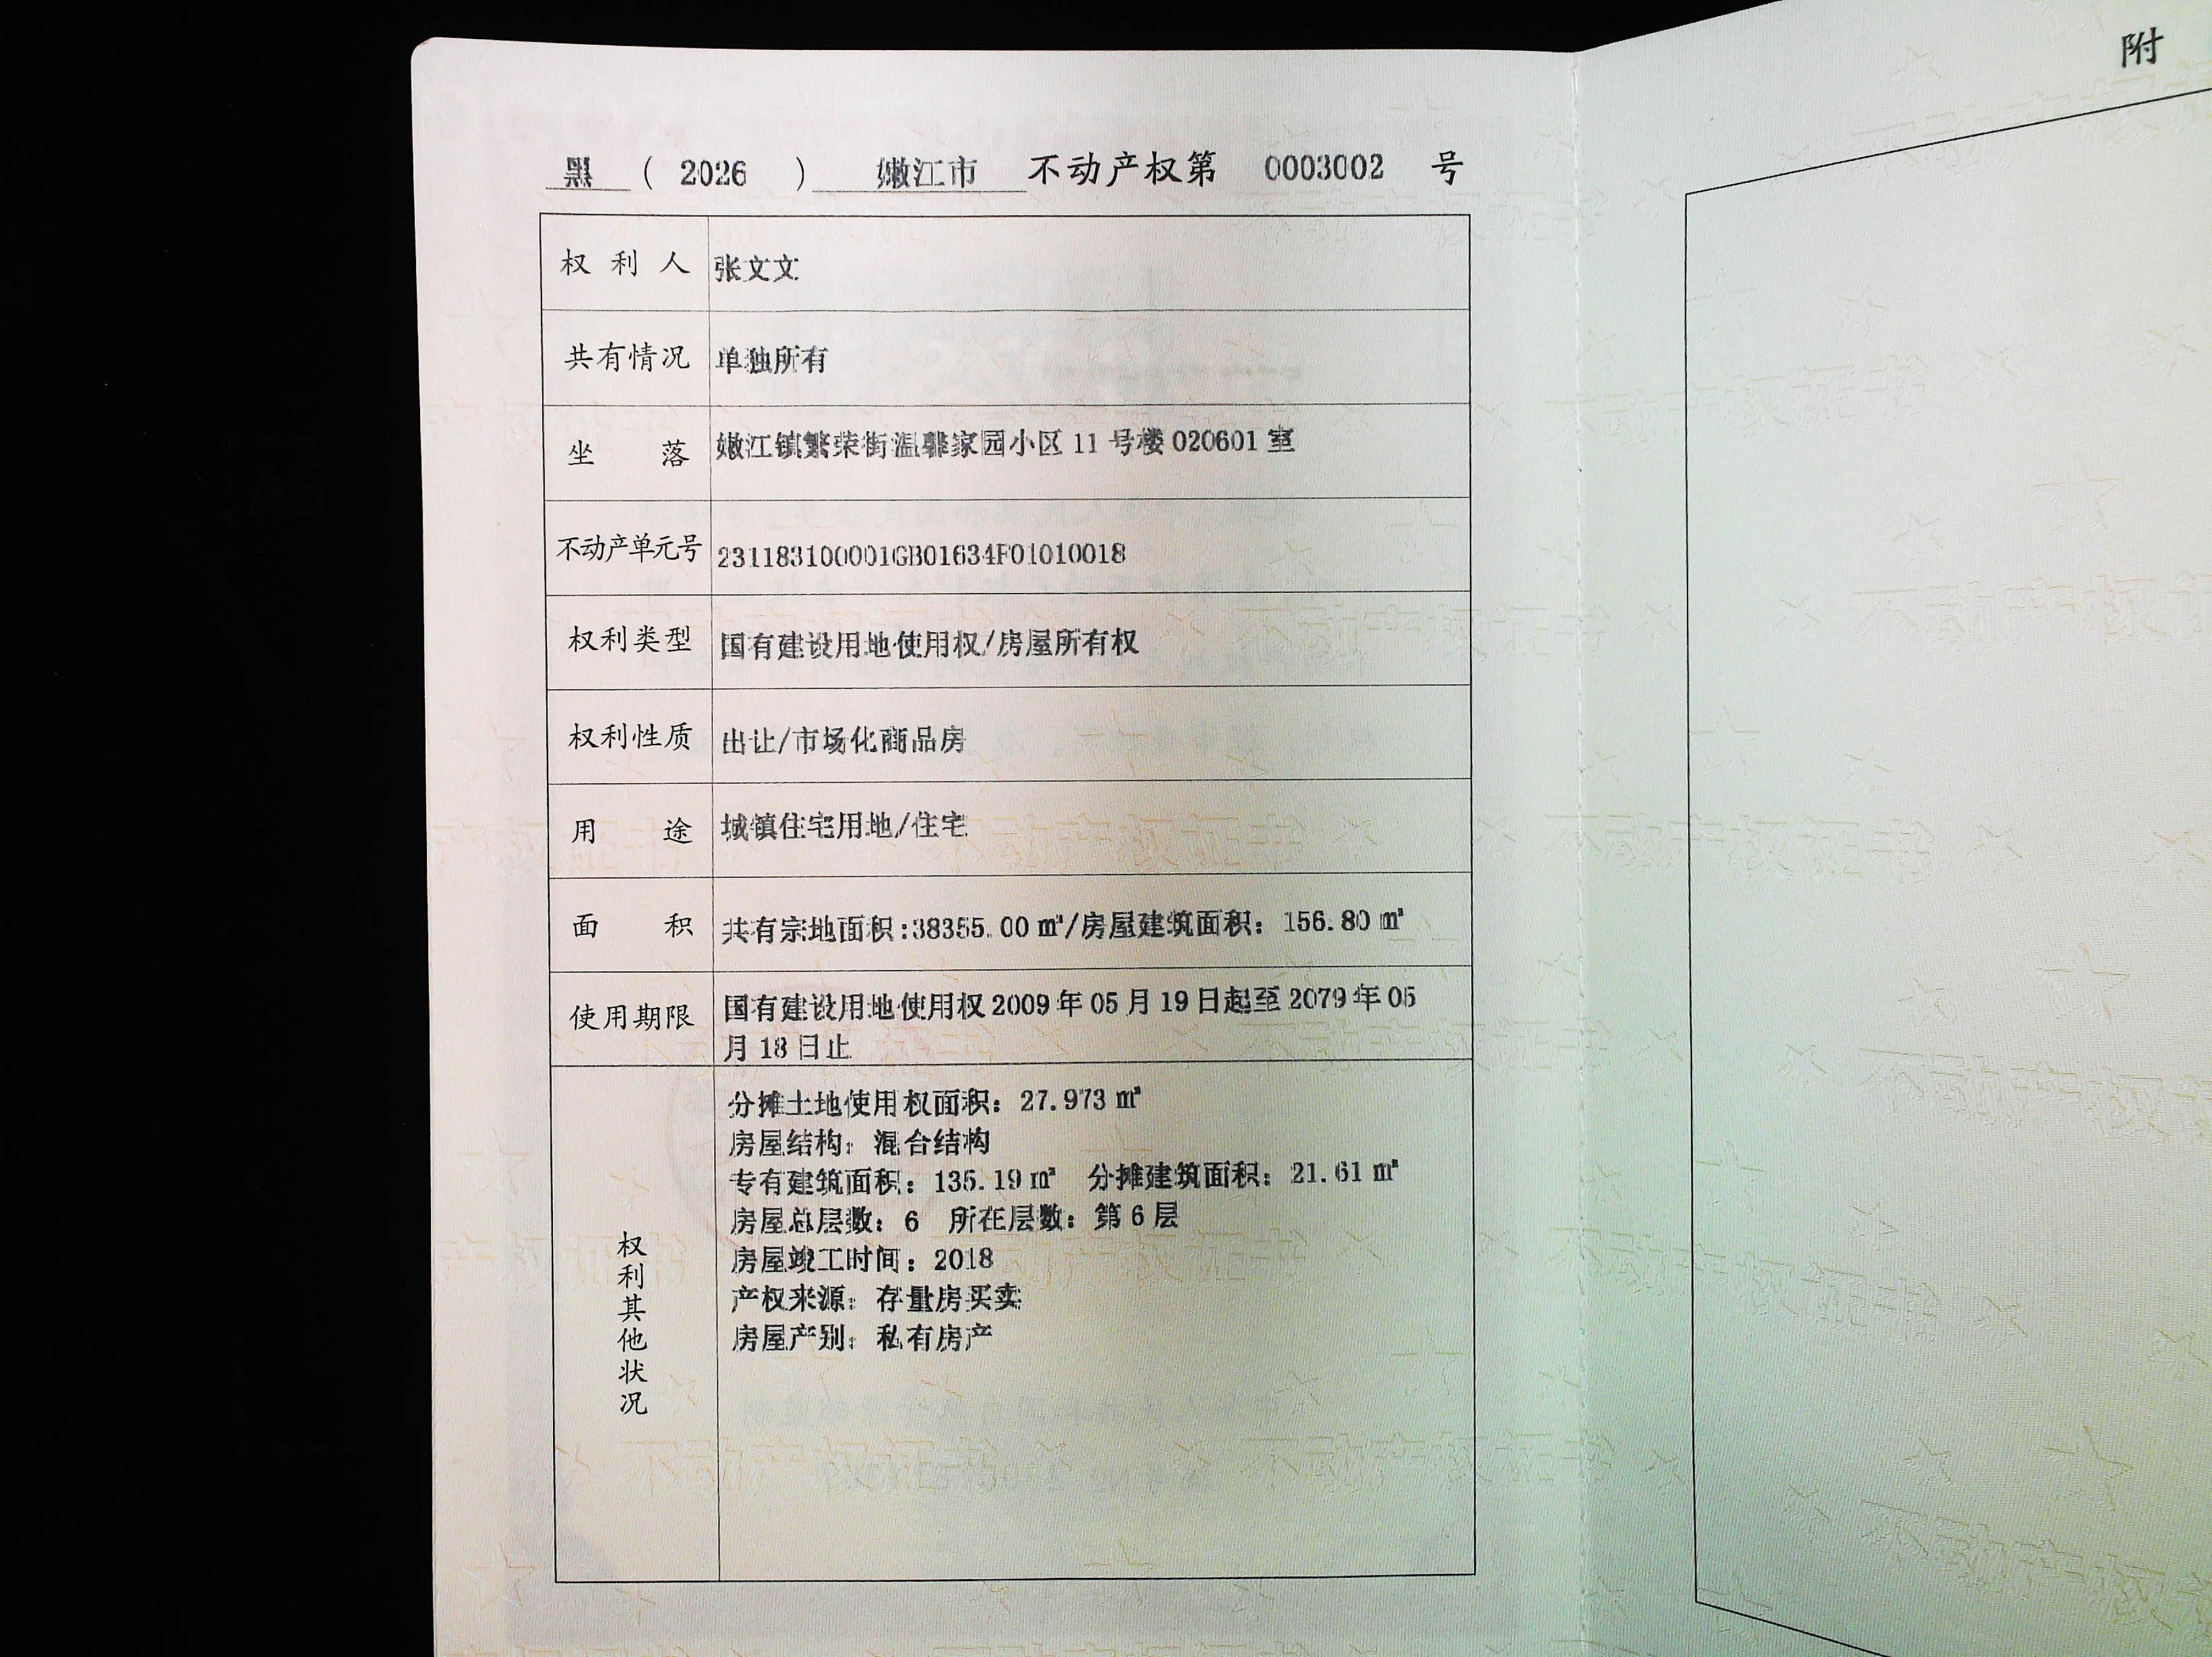 黑 ( 2026 ) 嫩江市 不动产权第 0003002 号
附
权利人 张文文
共有情况 单独所有
坐落 嫩江镇繁荣街温馨家园小区 11 号楼 020601 室
不动产单元号 231183100001GB01634F01010018
权利类型 国有建设用地使用权/房屋所有权
权利性质 出让/市场化商品房
用途 城镇住宅用地/住宅
面积 共有宗地面积:38355.00 ㎡/房屋建筑面积：156.80 ㎡
使用期限 国有建设用地使用权 2009 年 05 月 19 日起至 2079 年 05
月 18 日止
权利其他状况
分摊土地使用权面积：27.973 ㎡
房屋结构：混合结构
专有建筑面积：135.19 ㎡ 分摊建筑面积：21.61 ㎡
房屋总层数：6 所在层数：第 6 层
房屋竣工时间：2018
产权来源：存量房买卖
房屋产别：私有房产